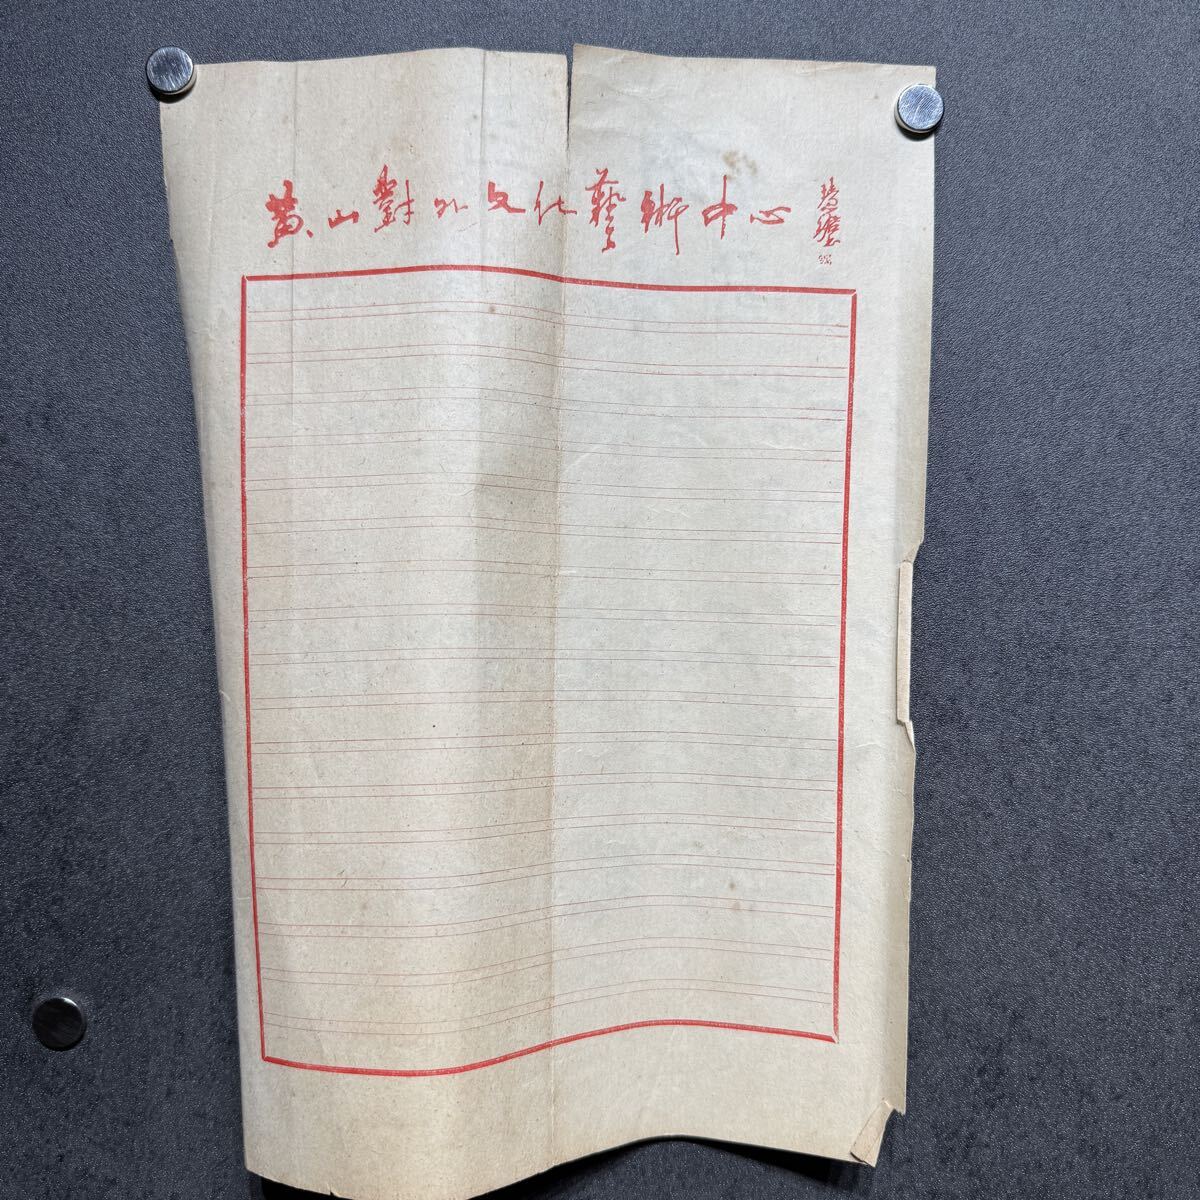 黄山對外文化藝術中心